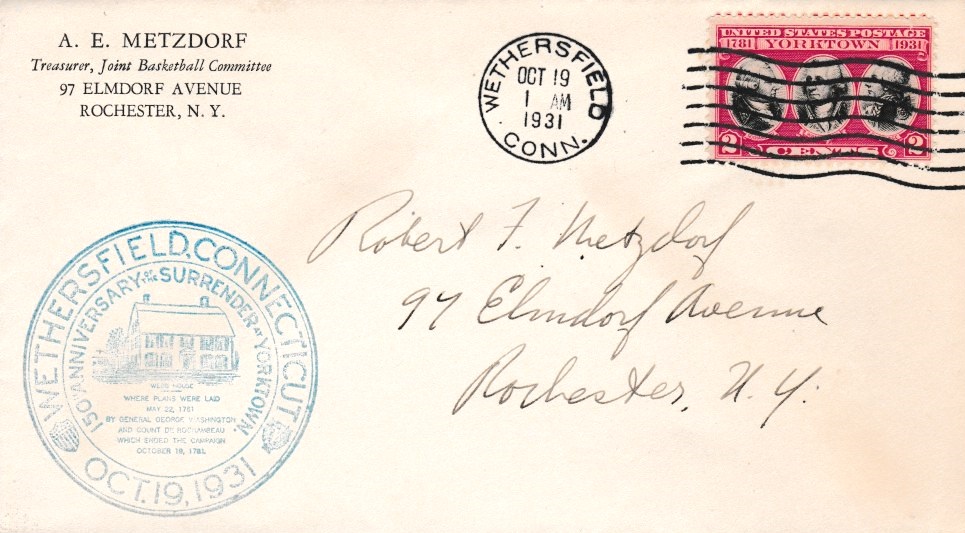 A. E. METZDORF
Treasurer, Joint Basketball Committee
97 ELMDORF AVENUE
ROCHESTER, N. Y.
WETHERSFIELD
OCT 19
1 AM
1931
CONN.
UNITED STATES POSTAGE
1781 YORKTOWN 1931
2 CENTS 2
Robert F. Metzdorf
97 Elmdorf Avenue
Rochester, N.Y.
WETHERSFIELD, CONNECTICUT
150TH ANNIVERSARY OF THE SURRENDER AT YORKTOWN.
WEBB HOUSE
WHERE PLANS WERE LAID
MAY 22, 1781
BY GENERAL GEORGE WASHINGTON
AND COUNT DE ROCHAMBEAU
WHICH ENDED THE CAMPAIGN
OCTOBER 19, 1781.
OCT. 19, 1931